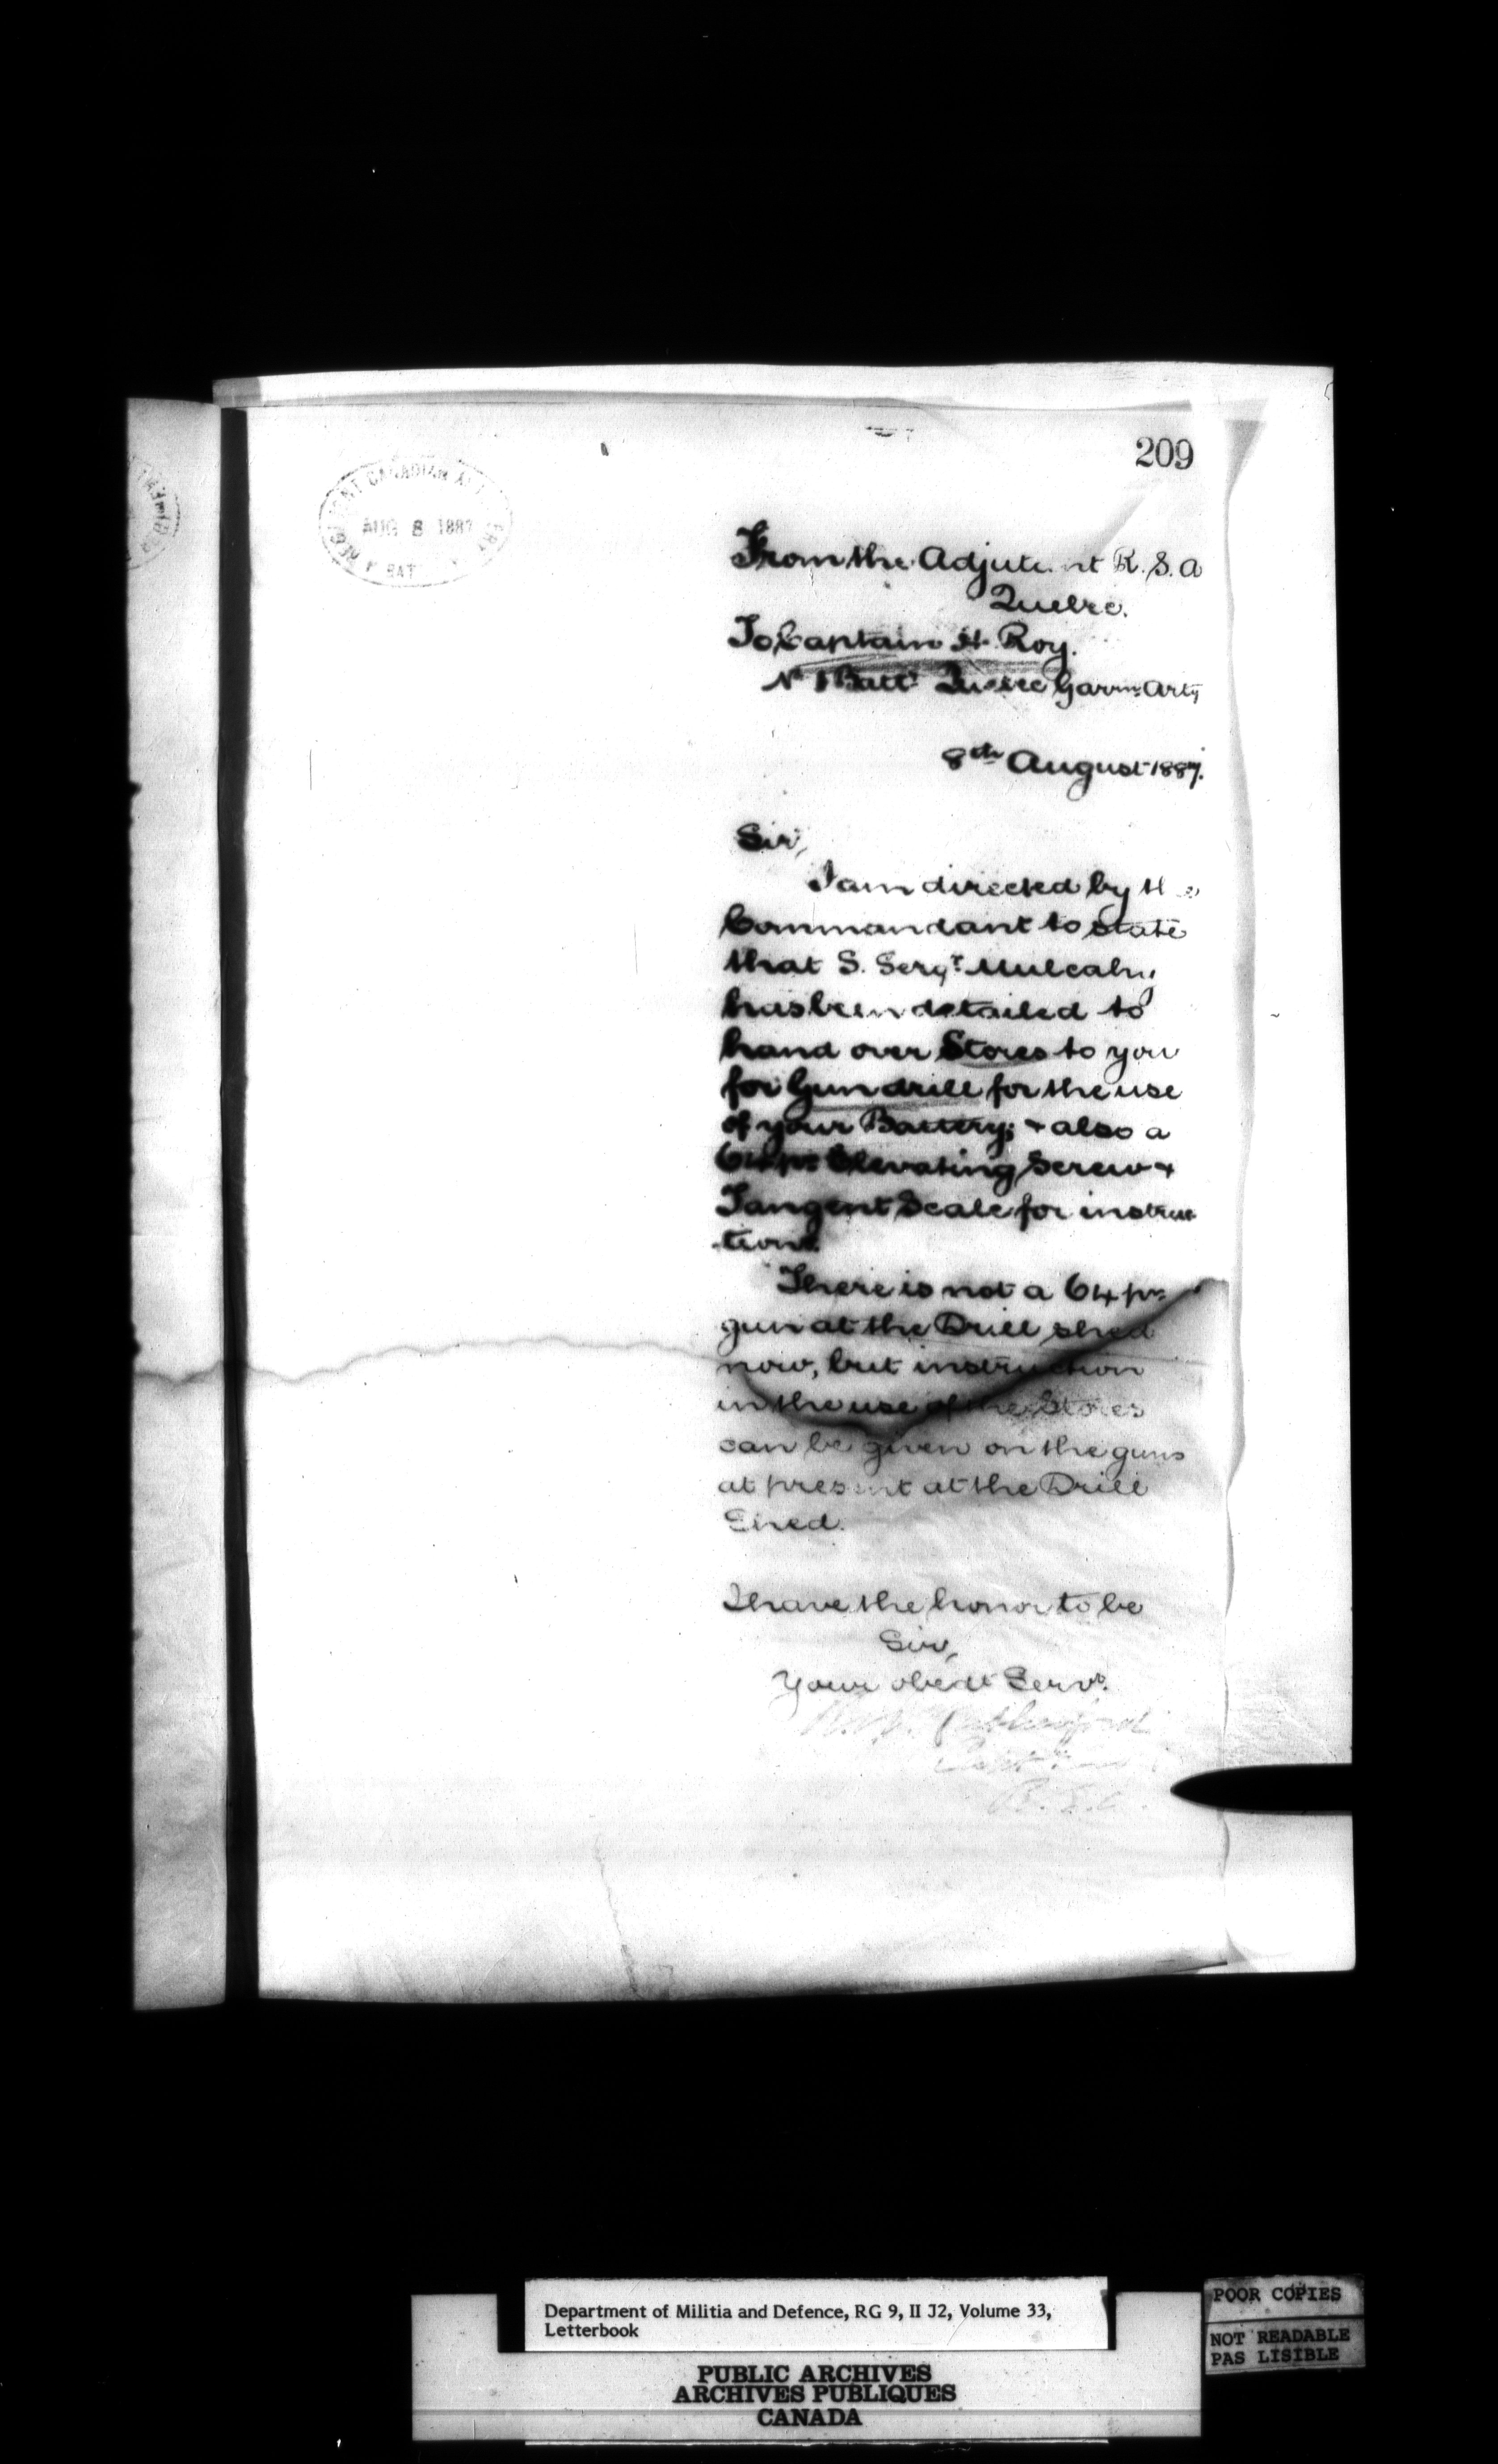 209
REGIMENT CANADIAN ARTILLERY
AUG 8 1887
BAT
From the Adjutant R.S.A
Quebec.
To Captain H. Roy.
No 1 Batt Quebec Garrn Arty
8th August 1887.
Sir,
I am directed by the
Commandant to state
that S. Sergt Mulcahy
has been detailed to
hand over Stores to you
for Gun drill for the use
of your Battery; & also a
64 pr Elevating Screw &
Tangent Scale for instruc
-tion.
There is not a 64 pr
gun at the Drill shed
now, but instruction
in the use of the Stores
can be given on the guns
at present at the Drill
Shed.
I have the honor to be
Sir,
Your obedt Servt.
Rutherford
Department of Militia and Defence, RG 9, II J2, Volume 33,
Letterbook
PUBLIC ARCHIVES
ARCHIVES PUBLIQUES
CANADA
POOR COPIES
NOT READABLE
PAS LISIBLE